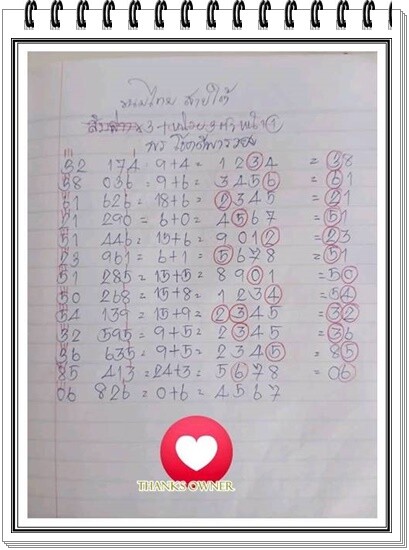 หนมไทย สายใต้
x3+หน่วย 3 ตัว หน้า 1
พร โชคดีพารวย
32 174 = 9+4 = 1234 = 38
38 036 = 9+6 = 3456 = 61
61 626 = 18+6 = 2345 = 21
21 290 = 6+0 = 4567 = 51
51 446 = 15+6 = 9012 = 23
23 961 = 6+1 = 5678 = 51
51 285 = 15+5 = 8901 = 50
50 268 = 15+8 = 1234 = 54
54 139 = 15+9 = 2345 = 32
32 595 = 9+5 = 2345 = 36
36 635 = 9+5 = 2345 = 85
85 413 = 24+3 = 5678 = 06
06 826 = 0+6 = 4567
THANKS OWNER.